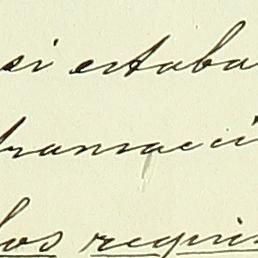 si estaba
transacci
los requis